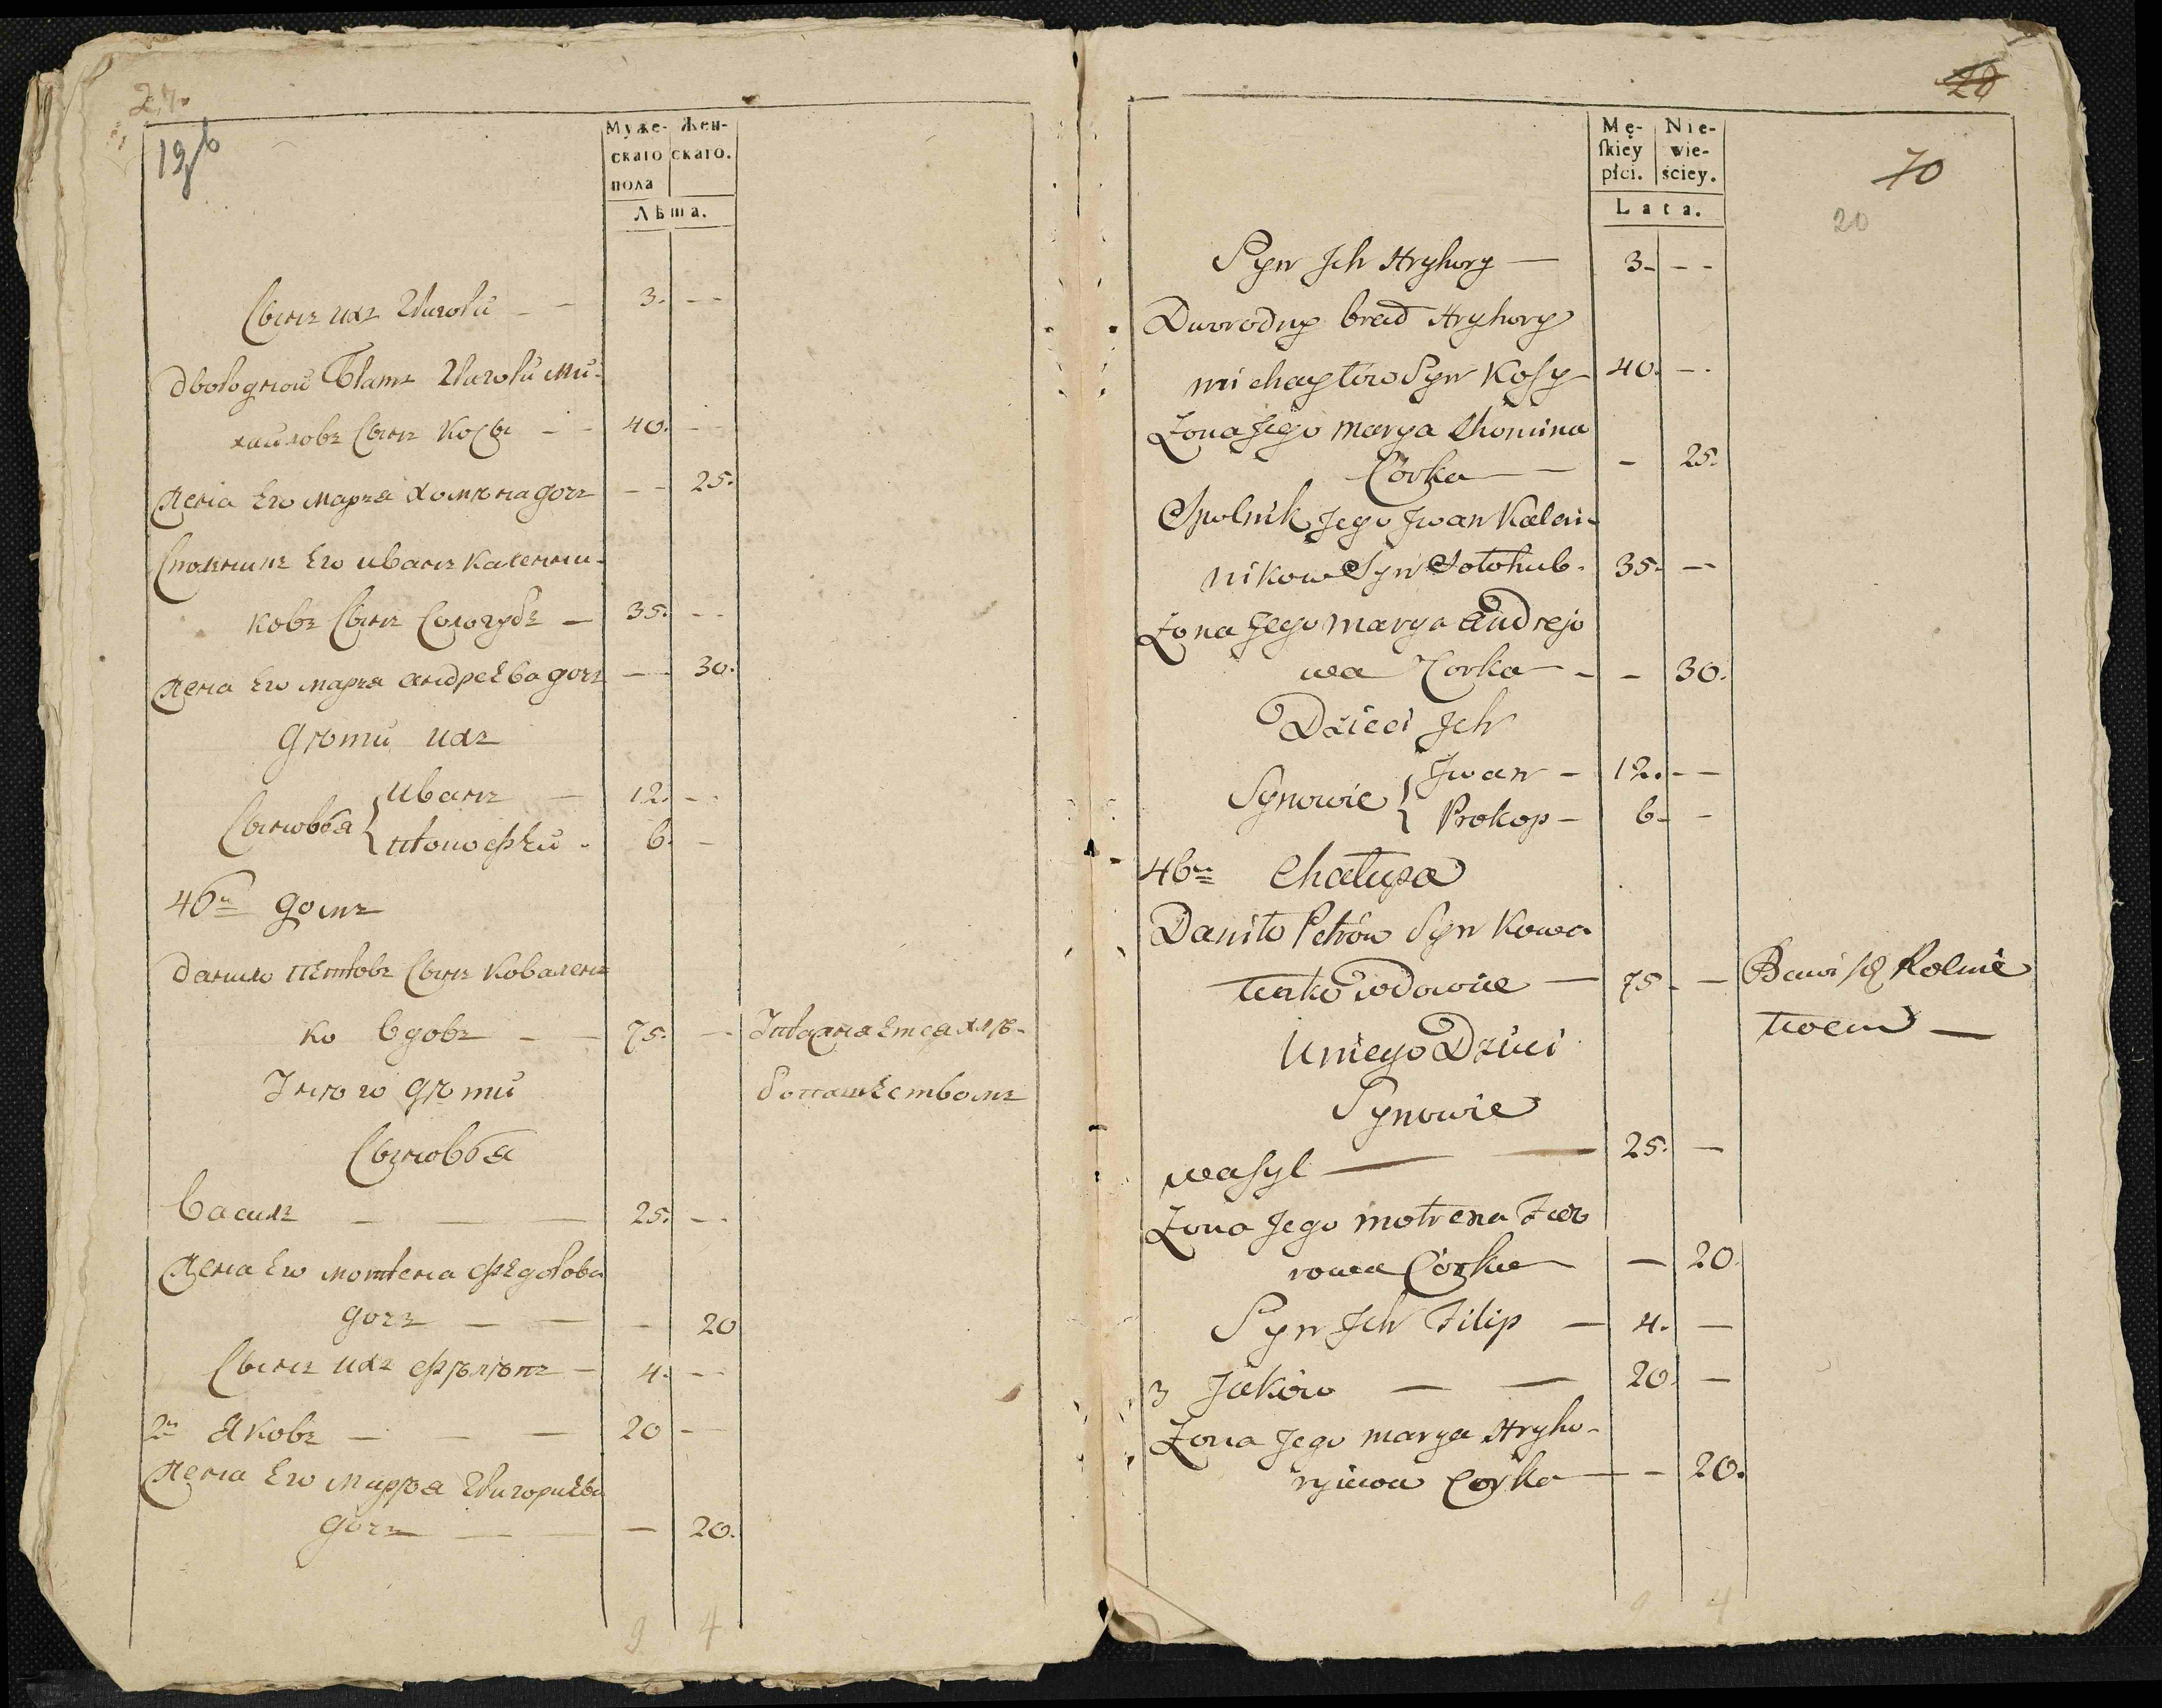 27.
19б
Муже- Жен-
скаго скаго.
пола
Лѣта.
Сынъ ихъ Григорій — 3. - -
Двоюдной братъ Григорій Ми-
хайловъ сынъ Косы - - 40. - -
Жена Его Марья Хомина дочъ - - 25.
Спольникъ Его Иванъ Каленни-
ковъ сынъ Сологубъ — 35. - -
Жена Его Марья Андреева дочъ — 30.
Дѣти ихъ
Сыновья { Иванъ — 12. - -
Прокофей - 6. -
46й домъ
Данило Петровъ сынъ Ковален-
ко вдовъ - - 75. - - Упражняется хлѣ-
У него дѣти бопашествомъ
Сыновья
Василъ — — — 25. - -
Жена Его Мотрена Федорова
дочъ — — — 20
Сынъ ихъ Филипъ — 4. - -
2й Яковъ — - — 20 - -
Жена Его Марья Григориева
дочъ — — — 20.
9 4
20
Mę- Nie-
ſkiey wie-
płci. ściey.
Lata.
70
20
Syn Jch Hryhory — 3 - - -
Dworodny brad Hryhory
Michayłow Syn Kosy 40. - -
Żona Jego Marya Chomina
Corka — - 25.
Spolnik Jego Jwan Kaleni-
nikow Syn Sołohub. 35. —
Żona Jego Marya Andrejo
wa Corka - - 30.
Dzieci Jch
Synowie { Jwan — 12. - —
Prokop — 6 - -
46ta Chałupa
Daniło Petrów Syn Kowa
lenko wdowiec — 75 - — Bawi się Rolnic
U niego Dzieci twem —
Synowie
Wasyl — — 25. —
Żona Jego Motrena Fedo
rowa Corka — 20.
Syn Jch Filip — 4. —
3 Jaków — — 20. —
Żona Jego Marya Hryho-
ryiewa Corka — - 20.
9 4